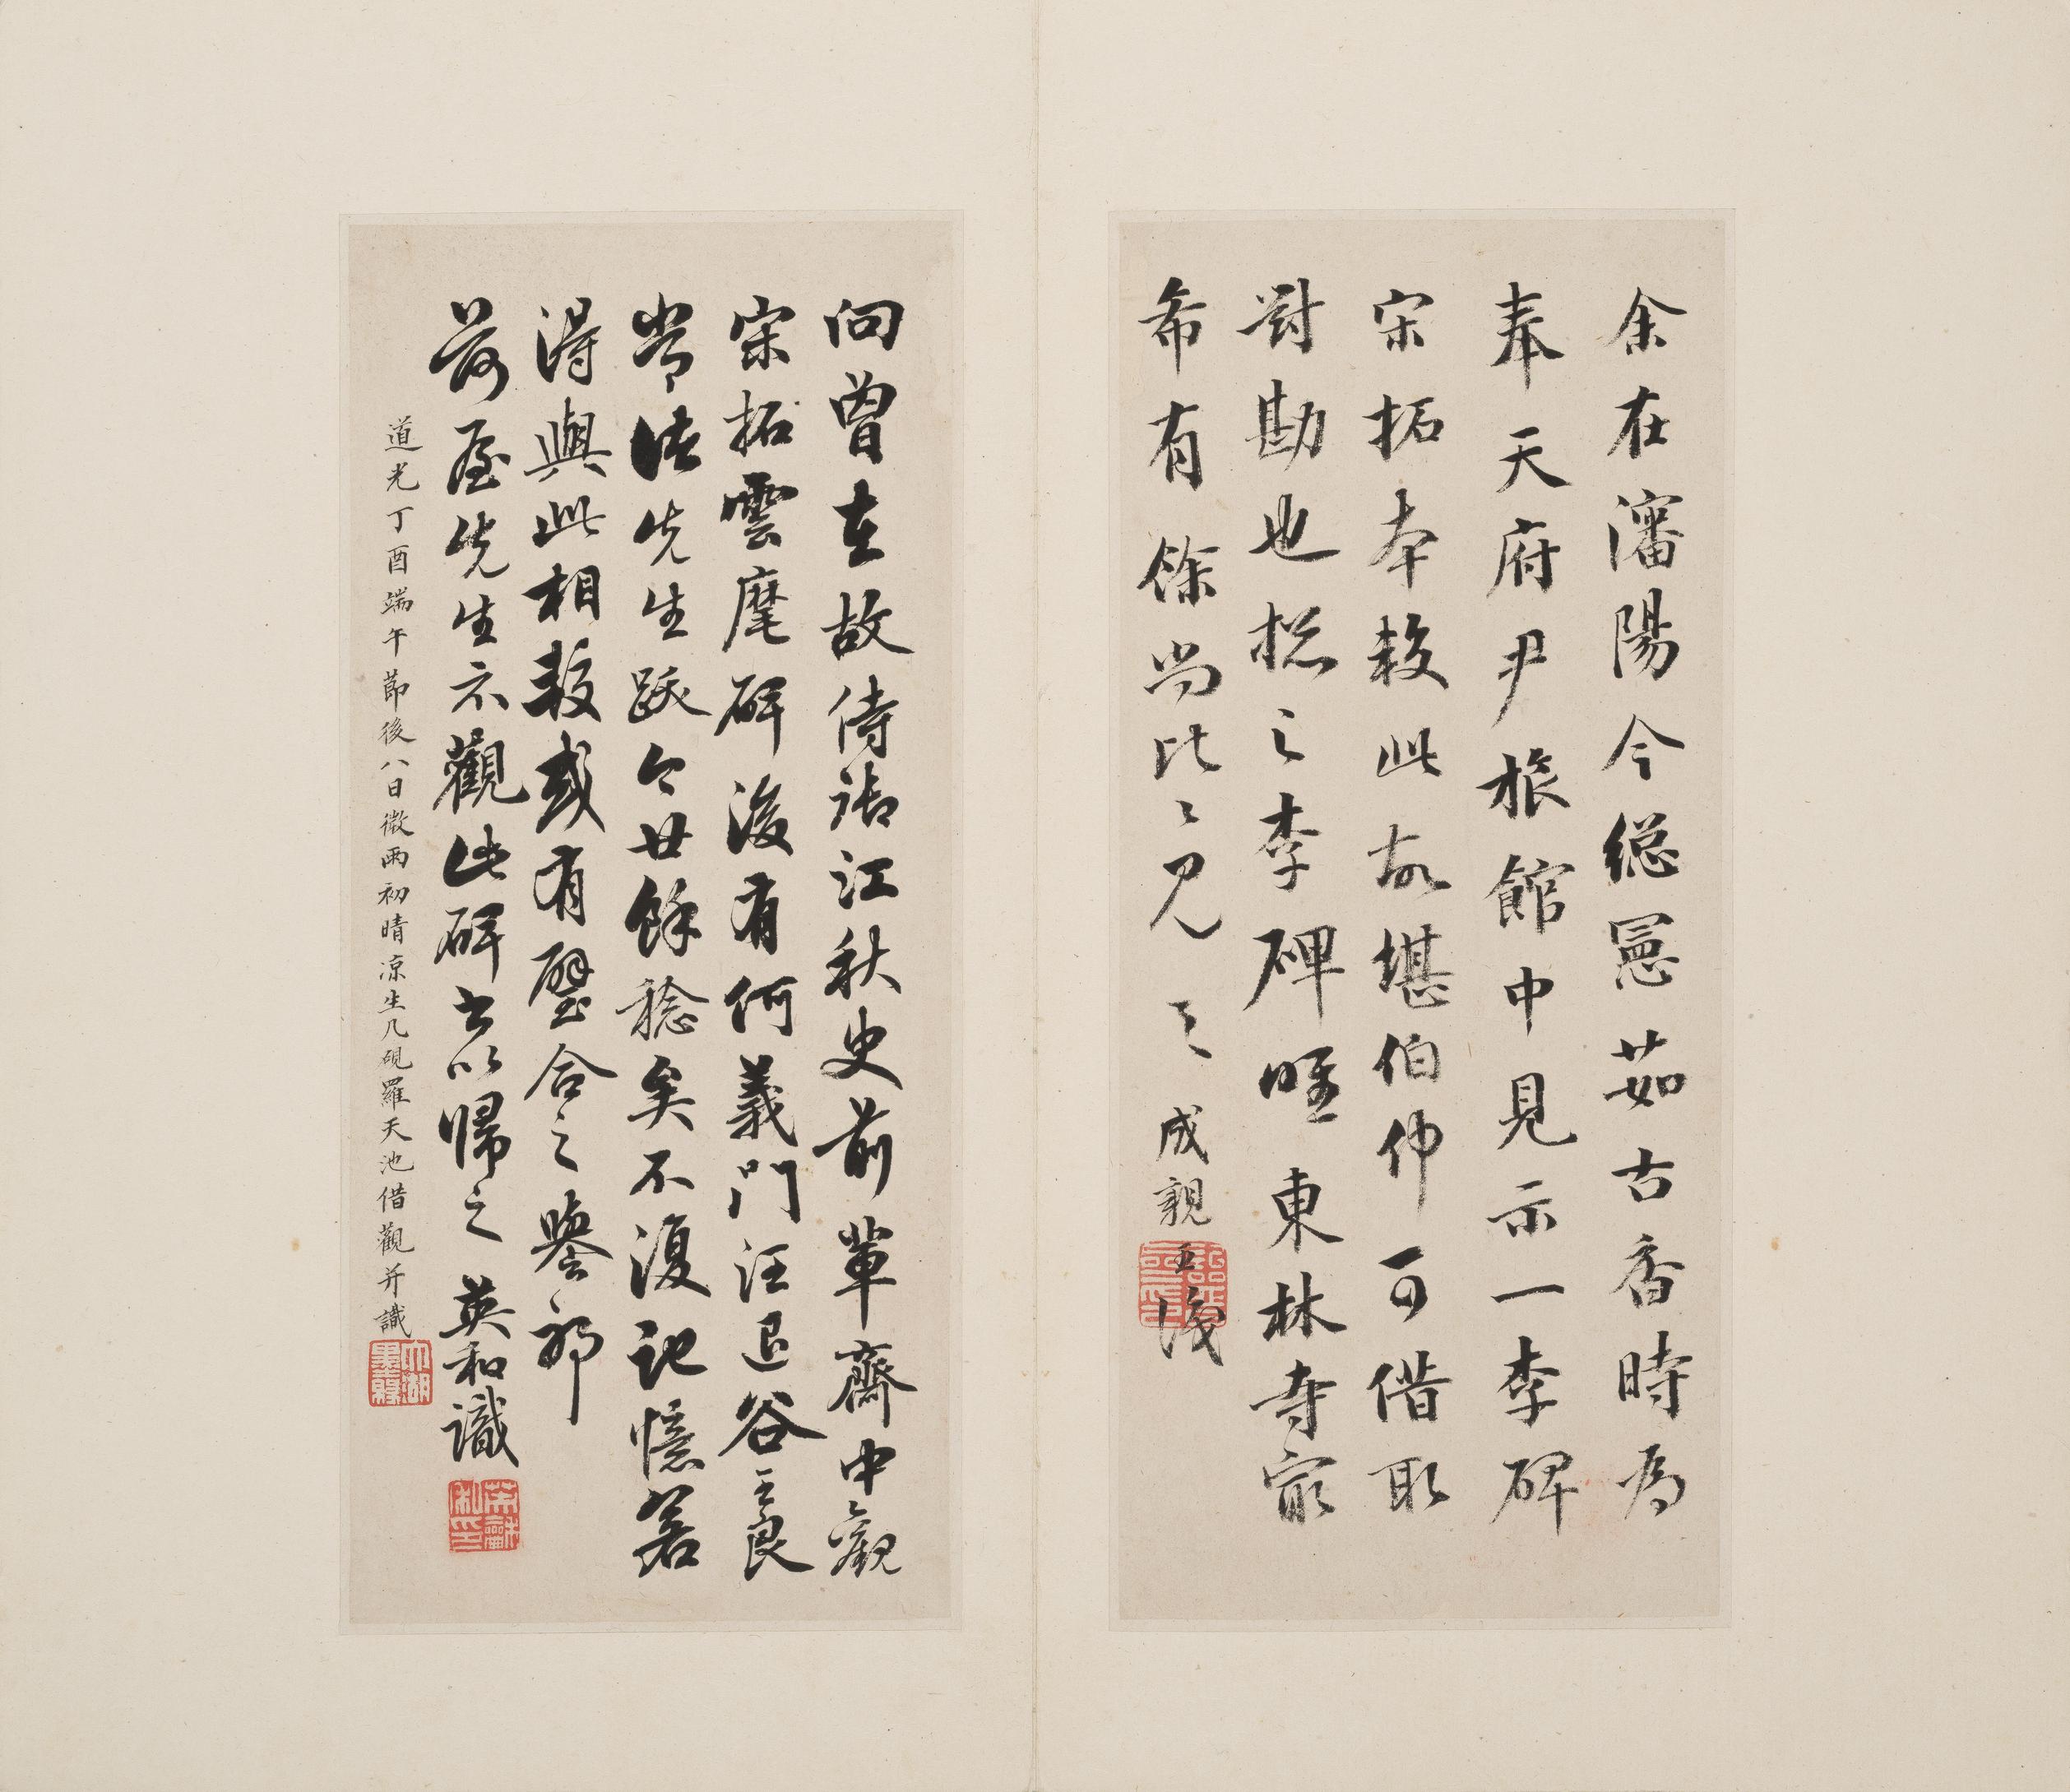 余在瀋陽今総憲茹古香時為
奉天府尹旅館中見示一李碑
宋拓本較此故堪伯仲可借取
對勘也捴之李碑唯東林寺最
希有餘尚比比見之 成親王識
向曾在故侍御江秋史前輩齋中觀
宋拓雲麾碑後有何義門汪退谷王良
常諸先生跋今廿餘稔矣不復記憶若
得與此相較或有璧合之譽耶
荷屋先生示觀此碑書以歸之 英和識
道光丁酉端午節後八日微雨初晴凉生几硯羅天池借觀并識